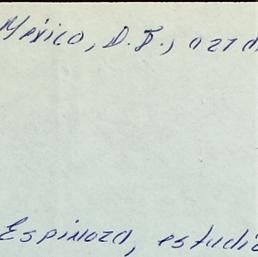 México, D.F.,
Espinoza, estudi